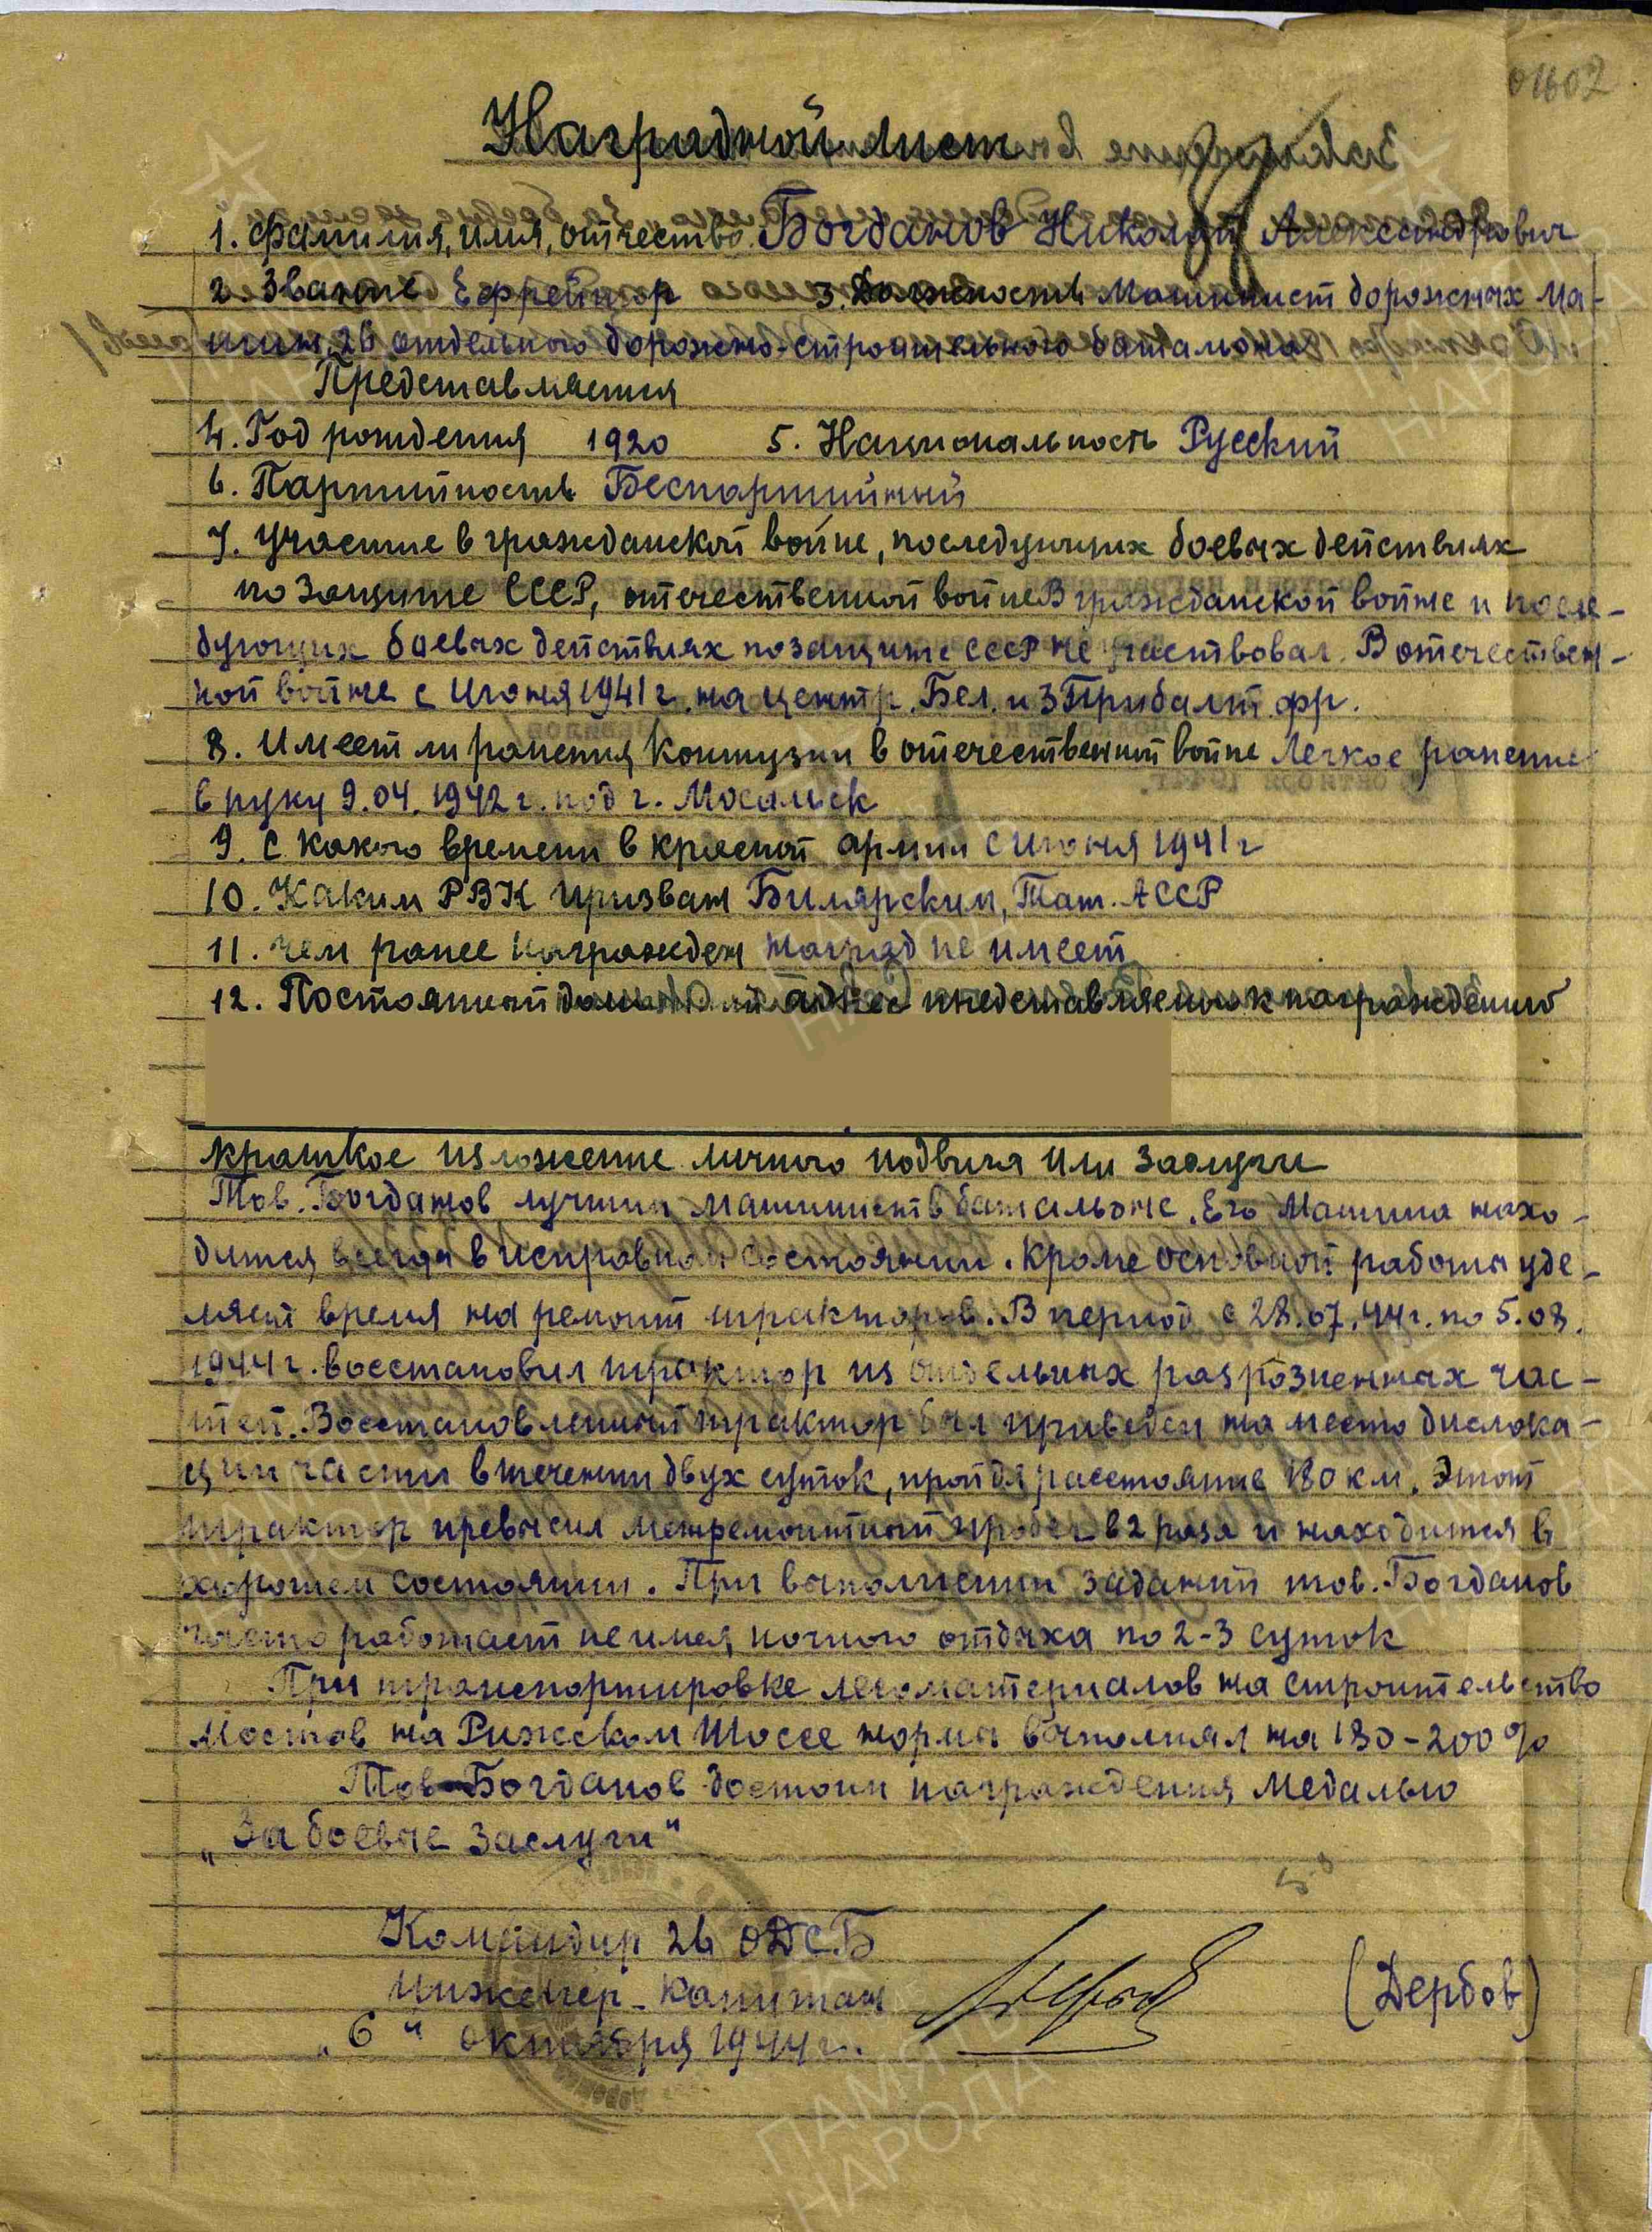 01602
Наградной лист
1. Фамилия, имя, отчество Богданов Николай Александрович
2. Звание Ефрейтор 3. Должность Машинист дорожных ма-
шин 26 отдельного дорожно-строительного батальона
Представляется
4. Год рождения 1920 5. Национальность Русский
6. Партийность Беспартийный
7. Участие в гражданской войне, последующих боевых действиях
по защите СССР, отечественной войне В гражданской войне и после-
дующих боевых действиях по защите СССР не участвовал. В отечествен-
ной войне с Июня 1941 г. на центр. Бел. и 3 Прибалт. фр.
8. Имеет ли ранения, контузии в отечественной войне Легкое ранение
в руку 9.04.1942 г. под г. Мосальск
9. С какого времени в красной армии с Июня 1941 г
10. Каким РВК призван Билярским, Тат. АССР
11. Чем ранее награжден наград не имеет
12. Постоянный домашний адрес представляемого к награждению
краткое изложение личного подвига или заслуги
Тов. Богданов лучший машинист в батальоне. Его Машина нахо-
дится всегда в исправном состоянии. Кроме основной работы уде-
ляет время на ремонт тракторов. В период с 28.07.44 г. по 5.08.
1944 г. восстановил трактор из отдельных разрозненных час-
тей. Восстановленный трактор был приведен на место дислока-
ции части в течении двух суток, пройдя расстояние 180 км. Этот
трактор превысил межремонтный пробег в 2 раза и находится в
хорошем состоянии. При выполнении заданий тов. Богданов
часто работает не имея ночного отдыха по 2-3 суток
При транспортировке лесоматериалов на строительство
мостов на Рижском Шоссе нормы выполнял на 180-200%
Тов. Богданов достоин награждения Медалью
„За боевые заслуги"
Командир 26 ОДСБ
инженер-капитан (Дербов)
„6" октября 1944 г.
ПАМЯТЬ
НАРОДА